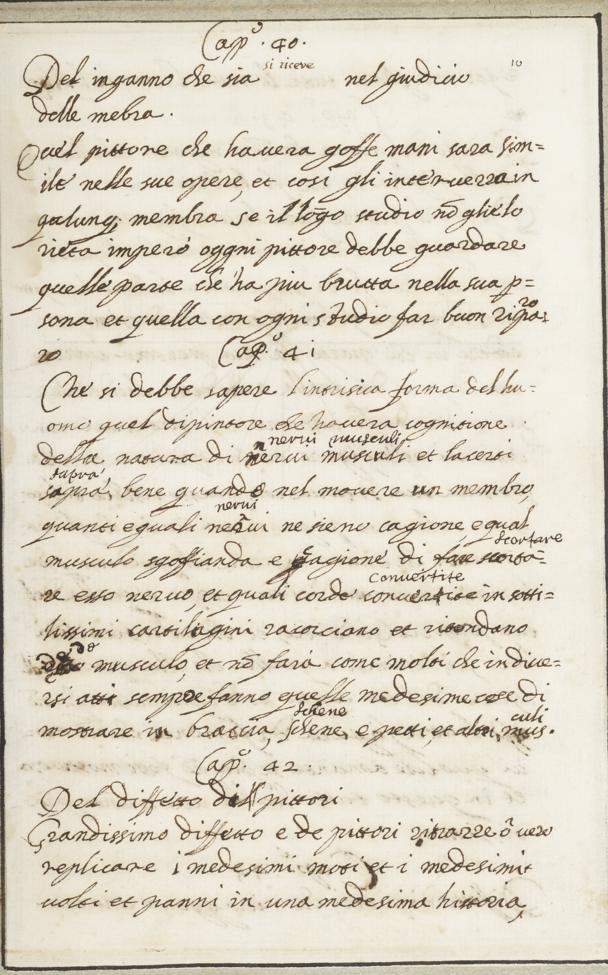 Capº. 40.
si riceve
10
Del inganno che sia nel giudicio
delle mēbra.
Quel pittore che havera goffe mani sara sim=
ile nelle sue opere, et cosi gli interverra in
qalunq; membra se il lōgo studio nō glielo
vieta imperó oggni pittore debbe guardare
quelle parte che ha piu brutta nella sua p=
sona et quella con ogni studio far buon ripa=
ro
ro Capº. 41
Che si debbe sapere l'intrisica forma del hu=
omo quel dipintore che havera cognitione
nervi musculi
della natura di nervi musculi et lacerti
sapra
sapra, bene quando nel movere un membro,
nervi
quanti e quali nervi ne sieno cagione e qual
scortare
musculo sgoffianda e cagione di fare scorta=
Convertite
re esso nervo, et quali corde convertite in sotti=
lissimi cartilagini racorciano et
musculo, et nō fará come molti che in dive=
rsi atti sempre fanno quelle medesime cose di
schiene culi
mostrare in braccia, schene, e petti, et altri mus.
Capº. 42.
Del diffetto di pittori
Grandissimo diffetto e de pittori ritrarre ó vero
replicare i medesimi moti et i medesimi
volti et panni in una medesima historia,